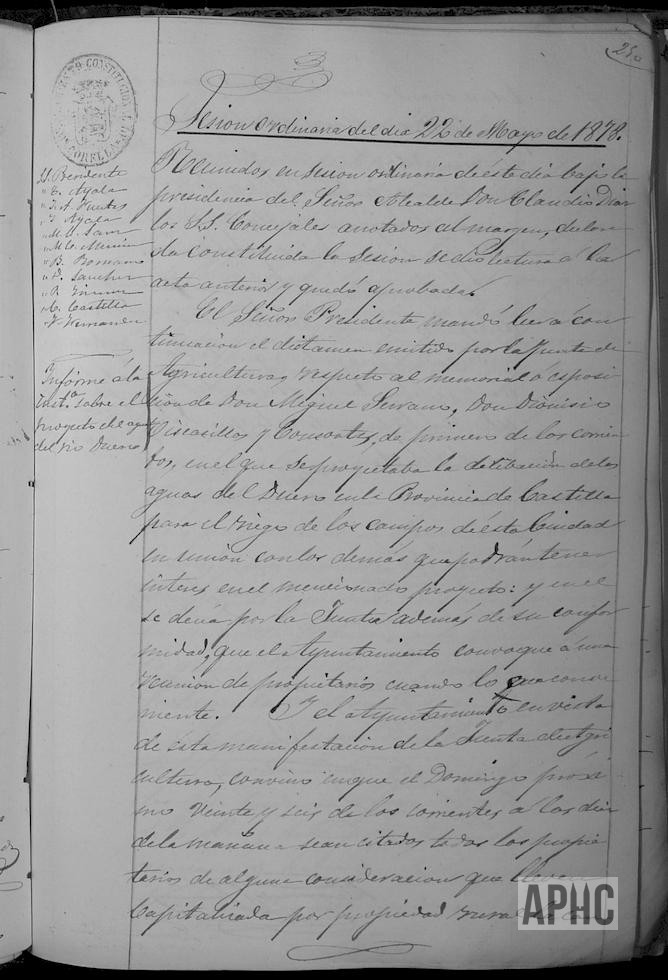 3
Sesion ordinaria del dia 22 de Mayo de 1878.
Reunidos en sesion ordinaria de éste dia bajo la
presidencia del Señor Alcalde Don Claudio
los S.S. Concejales anotados al margen, declara
da constituida la Sesion se dió lectura á la
acta anterior y quedó aprobada.
El Señor Presidente mandó leer á con
tinuacion el dictamen emitido por la Junta de
Agricultura, respeto al memorial ó esposi
cion de Don Miguel Serrano, Don Dionisio
Viscasillas y Consortes, de primero de los corrien
tes, en el que se proyectaba la deribación de las
aguas del Duero en la Provincia de Castilla
para el riego de los campos de ésta Ciudad
en unión con los demás que podrán tener
interes en el mencionado proyecto: y en el
se decia por la Junta además de su confor
midad, que el Ayuntamiento convoque á una
reunion de propietarios cuando lo crea conve
niente. Y el Ayuntamiento en vista
de ésta manifestación de la Junta de Agri
cultura, convino en que el Domingo próxi
mo veinte y seis de los corrientes á las diez
de la mañana sean citados todos los propie
tarios de alguna consideracion que lleven
Capitaliada por propiedad rural
S. Presidente
" E. Ayala
" J. A. Puertes
" J. Ayala
" B. Romano
" P. Sanchez
" C. Castilla
" V. Fernandez
Informe á la
Inst.ª sobre el
proyecto del agua
del rio Duero
APHC